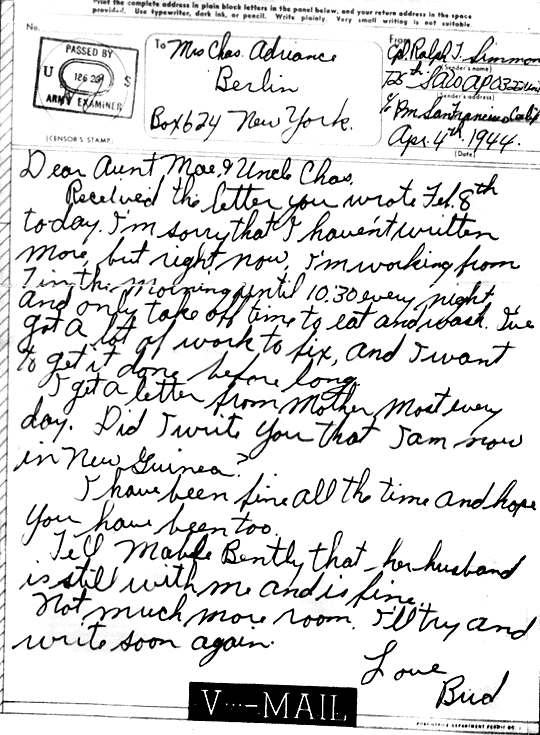 Print the complete address in plain block letters in the panel below, and your return address in the space
provided. Use typewriter, dark ink, or pencil. Write plainly. Very small writing is not suitable.
No.
PASSED BY
U S
ARMY EXAMINER
(CENSOR'S STAMP)
To Mrs Chas. Adriance
Berlin
Box 624 New York.
From
Cpl. Ralph T. Simmon
(Sender's name)
(Sender's address)
c/o Pm San Francisco Calif
Apr. 4th, 1944.
(Date)
Dear Aunt Mae, & Uncle Chas.
Received the letter you wrote Feb. 8th
today. I'm sorry that I haven't written
more, but right now, I'm working from
7 in the morning until 10:30 every night,
and only take off time to eat and wash. I've
got a lot of work to fix, and I want
to get it done before long.
I get a letter from Mother, most every
day. Did I write you that I am now
in New Guinea?
I have been fine all the time and hope
you have been too.
Tell Mable Bently that her husband
is still with me and is fine.
Not much more room. I'll try and
write soon again.
Love
Bud
V···—MAIL